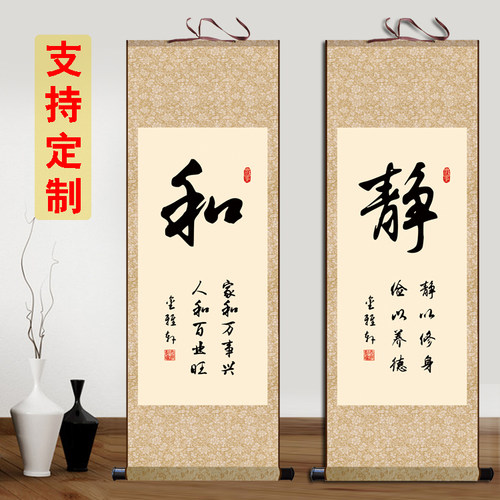 支持定制
和
家和万事兴
人和百业旺
静
静以修身
俭以养德